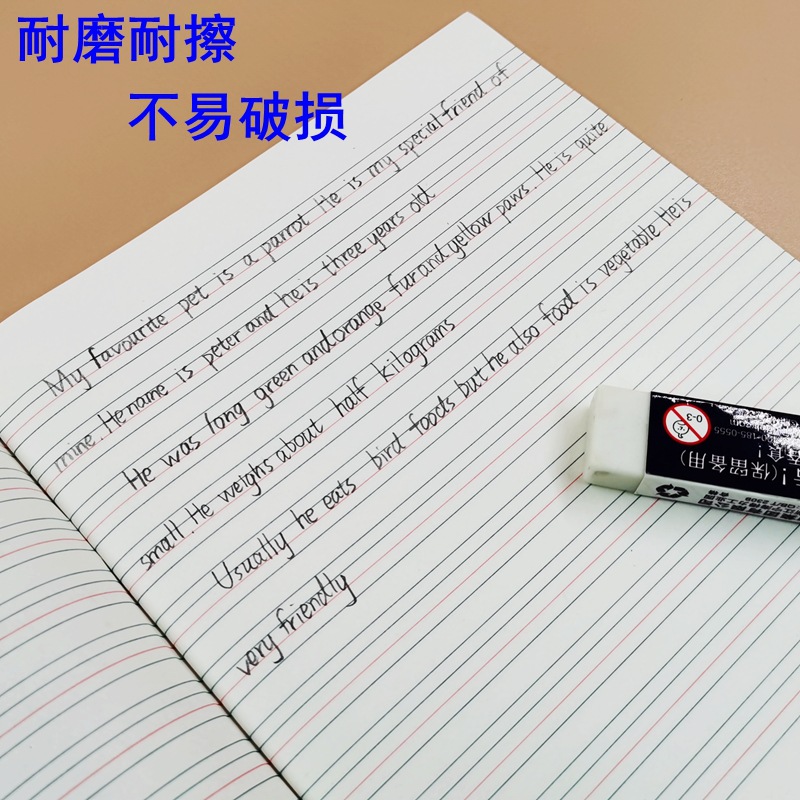 耐磨耐擦
不易破损
My favourite pet is a parrot He is my special friend of
mine. He name is peter and he is three years old
He was long green and orange fur and yellow paws. He is quite
small. He weighs about half kilograms
Usually he eats bird foods but he also food is vegetable He is
very friendly
0-3
(保留备用)